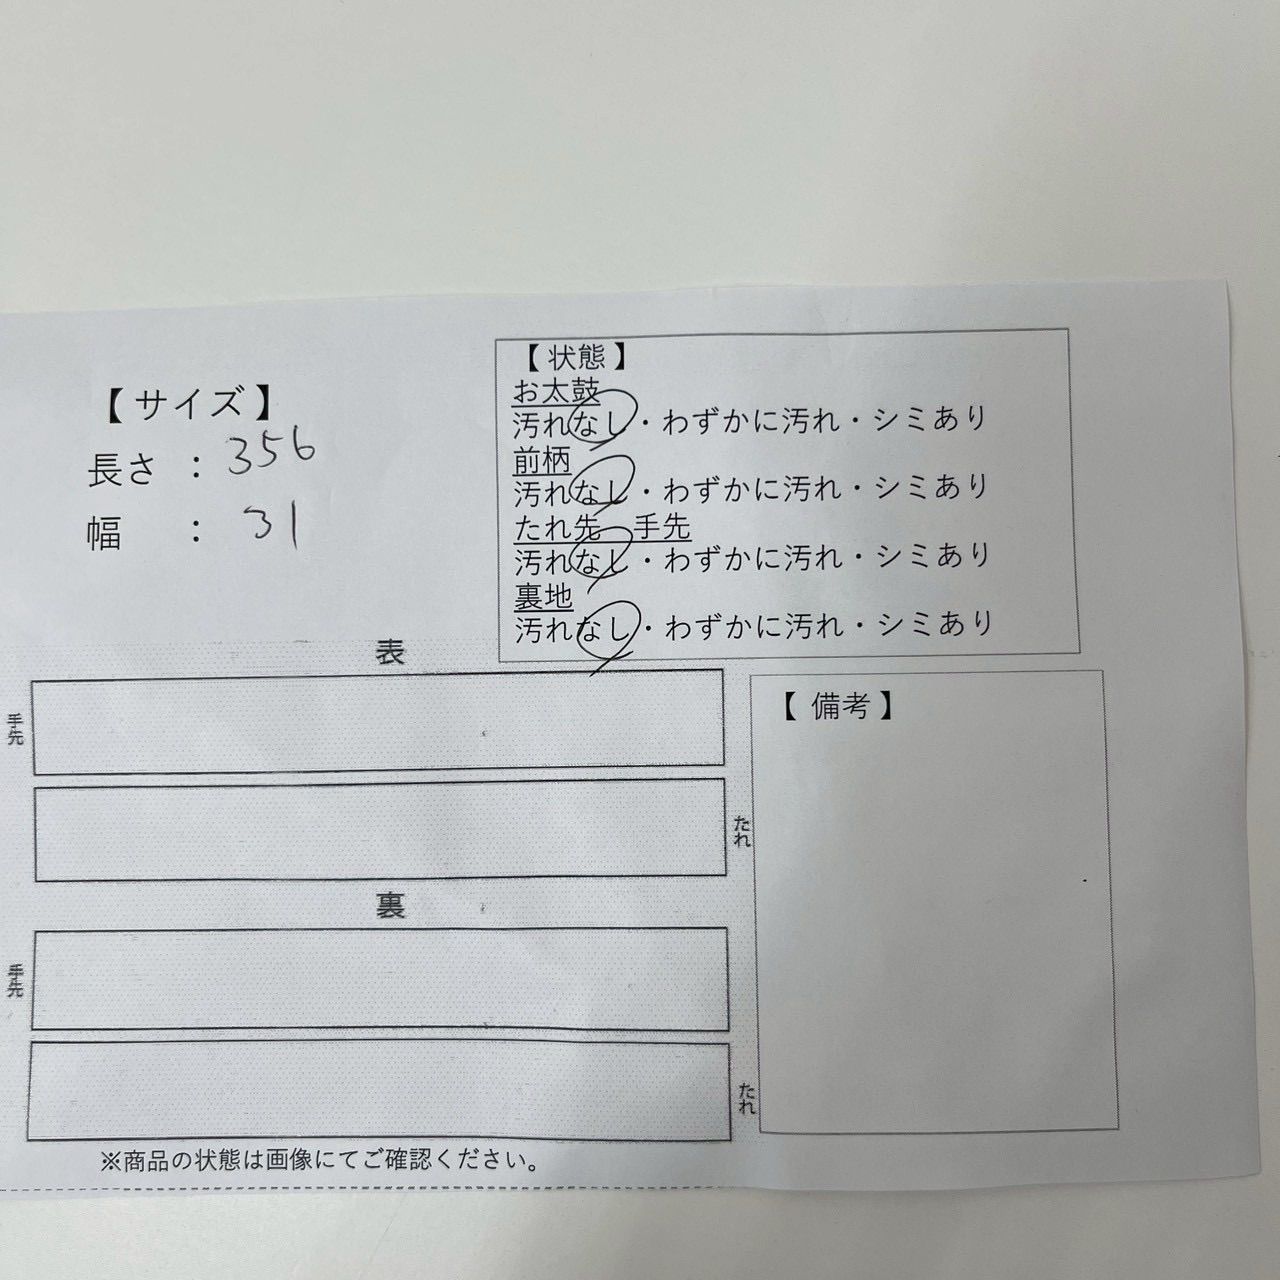 【 サイズ 】
長さ ： 356
幅 ： 31
【 状態 】
お太鼓
汚れなし・わずかに汚れ・シミあり
前柄
汚れなし・わずかに汚れ・シミあり
たれ先 手先
汚れなし・わずかに汚れ・シミあり
裏地
汚れなし・わずかに汚れ・シミあり
表
手先
たれ
裏
手先
たれ
【 備考 】
※商品の状態は画像にてご確認ください。